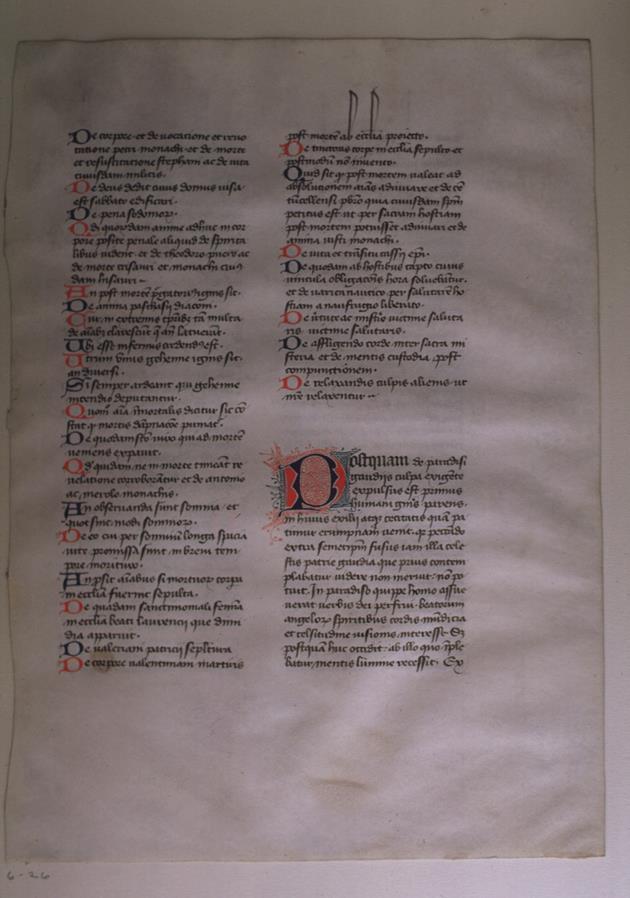 De corpore et de vocacione et revo
catione petri monachi et de morte
et resuscitatione stephani ac de vita
cuiusdam militis.
De deus dedit cuius domus visa
est sabbato edificari.
De pena sodomoꝝ.
Qd̓ quordam anime adhuc in cor
pore posite penale aliquid de spirita
libus vident et de theodoro puero ac
de morte crisauri et monachi
An post morte ignis sit.
De anima paschasij diaconi.
Cur in extremis tā multa
de
Ubi esse infernus credendꝰ est.
Utrum vnus gehenne ignis sit
an diversi.
Si semper ardeant qui gehenne
incendio deputantur.
Quom̄ aīa īmortalis dicatur
De quodam scō viro qui ad mortē
veniens expavit.
Qd̓ quidam ne in morte timeāt re
velatione corroborātur et de antonio
ac merolo monachis.
An observanda sunt somnia et
quot sint modi somnioꝝ.
De eo cui per somniū longa spacia
vite promissa sunt in brevi tem
pore morituro.
An ꝓsit aīabus si mortuoꝝ corpa
in ecclīa fuerint sepulta.
De quadam sanctimoniali femīa
in ecclīa beati laurencij que dimi
dia apparuit.
De valeriani patricij sepltura
De corpore valentiniani martiris
post mortē ab ecclīa proiecto.
De tinctoris corpe in ecclīa sepulto et
postmodū nō invento.
Quid sit qd̓ post mortem valeat ad
absolutionem aīas adiuvare et de
pb̄ro quia cuiusdam spm̄
petitus est ut per sacram hostiam
post mortem potuisset adiuvari et de
anima iusti monachi.
De vita et trāsitu cassij epī.
De quodam ab hostibus capto cuius
vincula obligacōis hora solvebātur.
et de nautico per salutarē ho
stiam a naufragio liberato.
De virtute ac misterio victime saluta
ris victime salutaris.
De affligendo corde inter sacra mi
steria et de mentis custodia post
compunctionem.
De relaxandis culpis alienis ut
nr̄e relaxentur
Postquam de paradisi
gaudijs culpa exigēte
expulsus est primus
humani gnīs parens.
in huius exilij atqȝ cecitatis quā pa
timur erumpnam venit. qr̄ peccādo
extra semetipm̄ fusus iam illa cele
stis patrie gaudia que prius contem
plabatur videre non meruit nō po
tuit. In paradiso quippe homo assue
verat verbis dei perfrui beatorum
angeloꝝ spiritibus cordis mūdicia
et celsitudine visionis interesse. Sȝ
postquā huc occidit ab illo quo īple
batur mentis lumine recessit. Ex
6-26